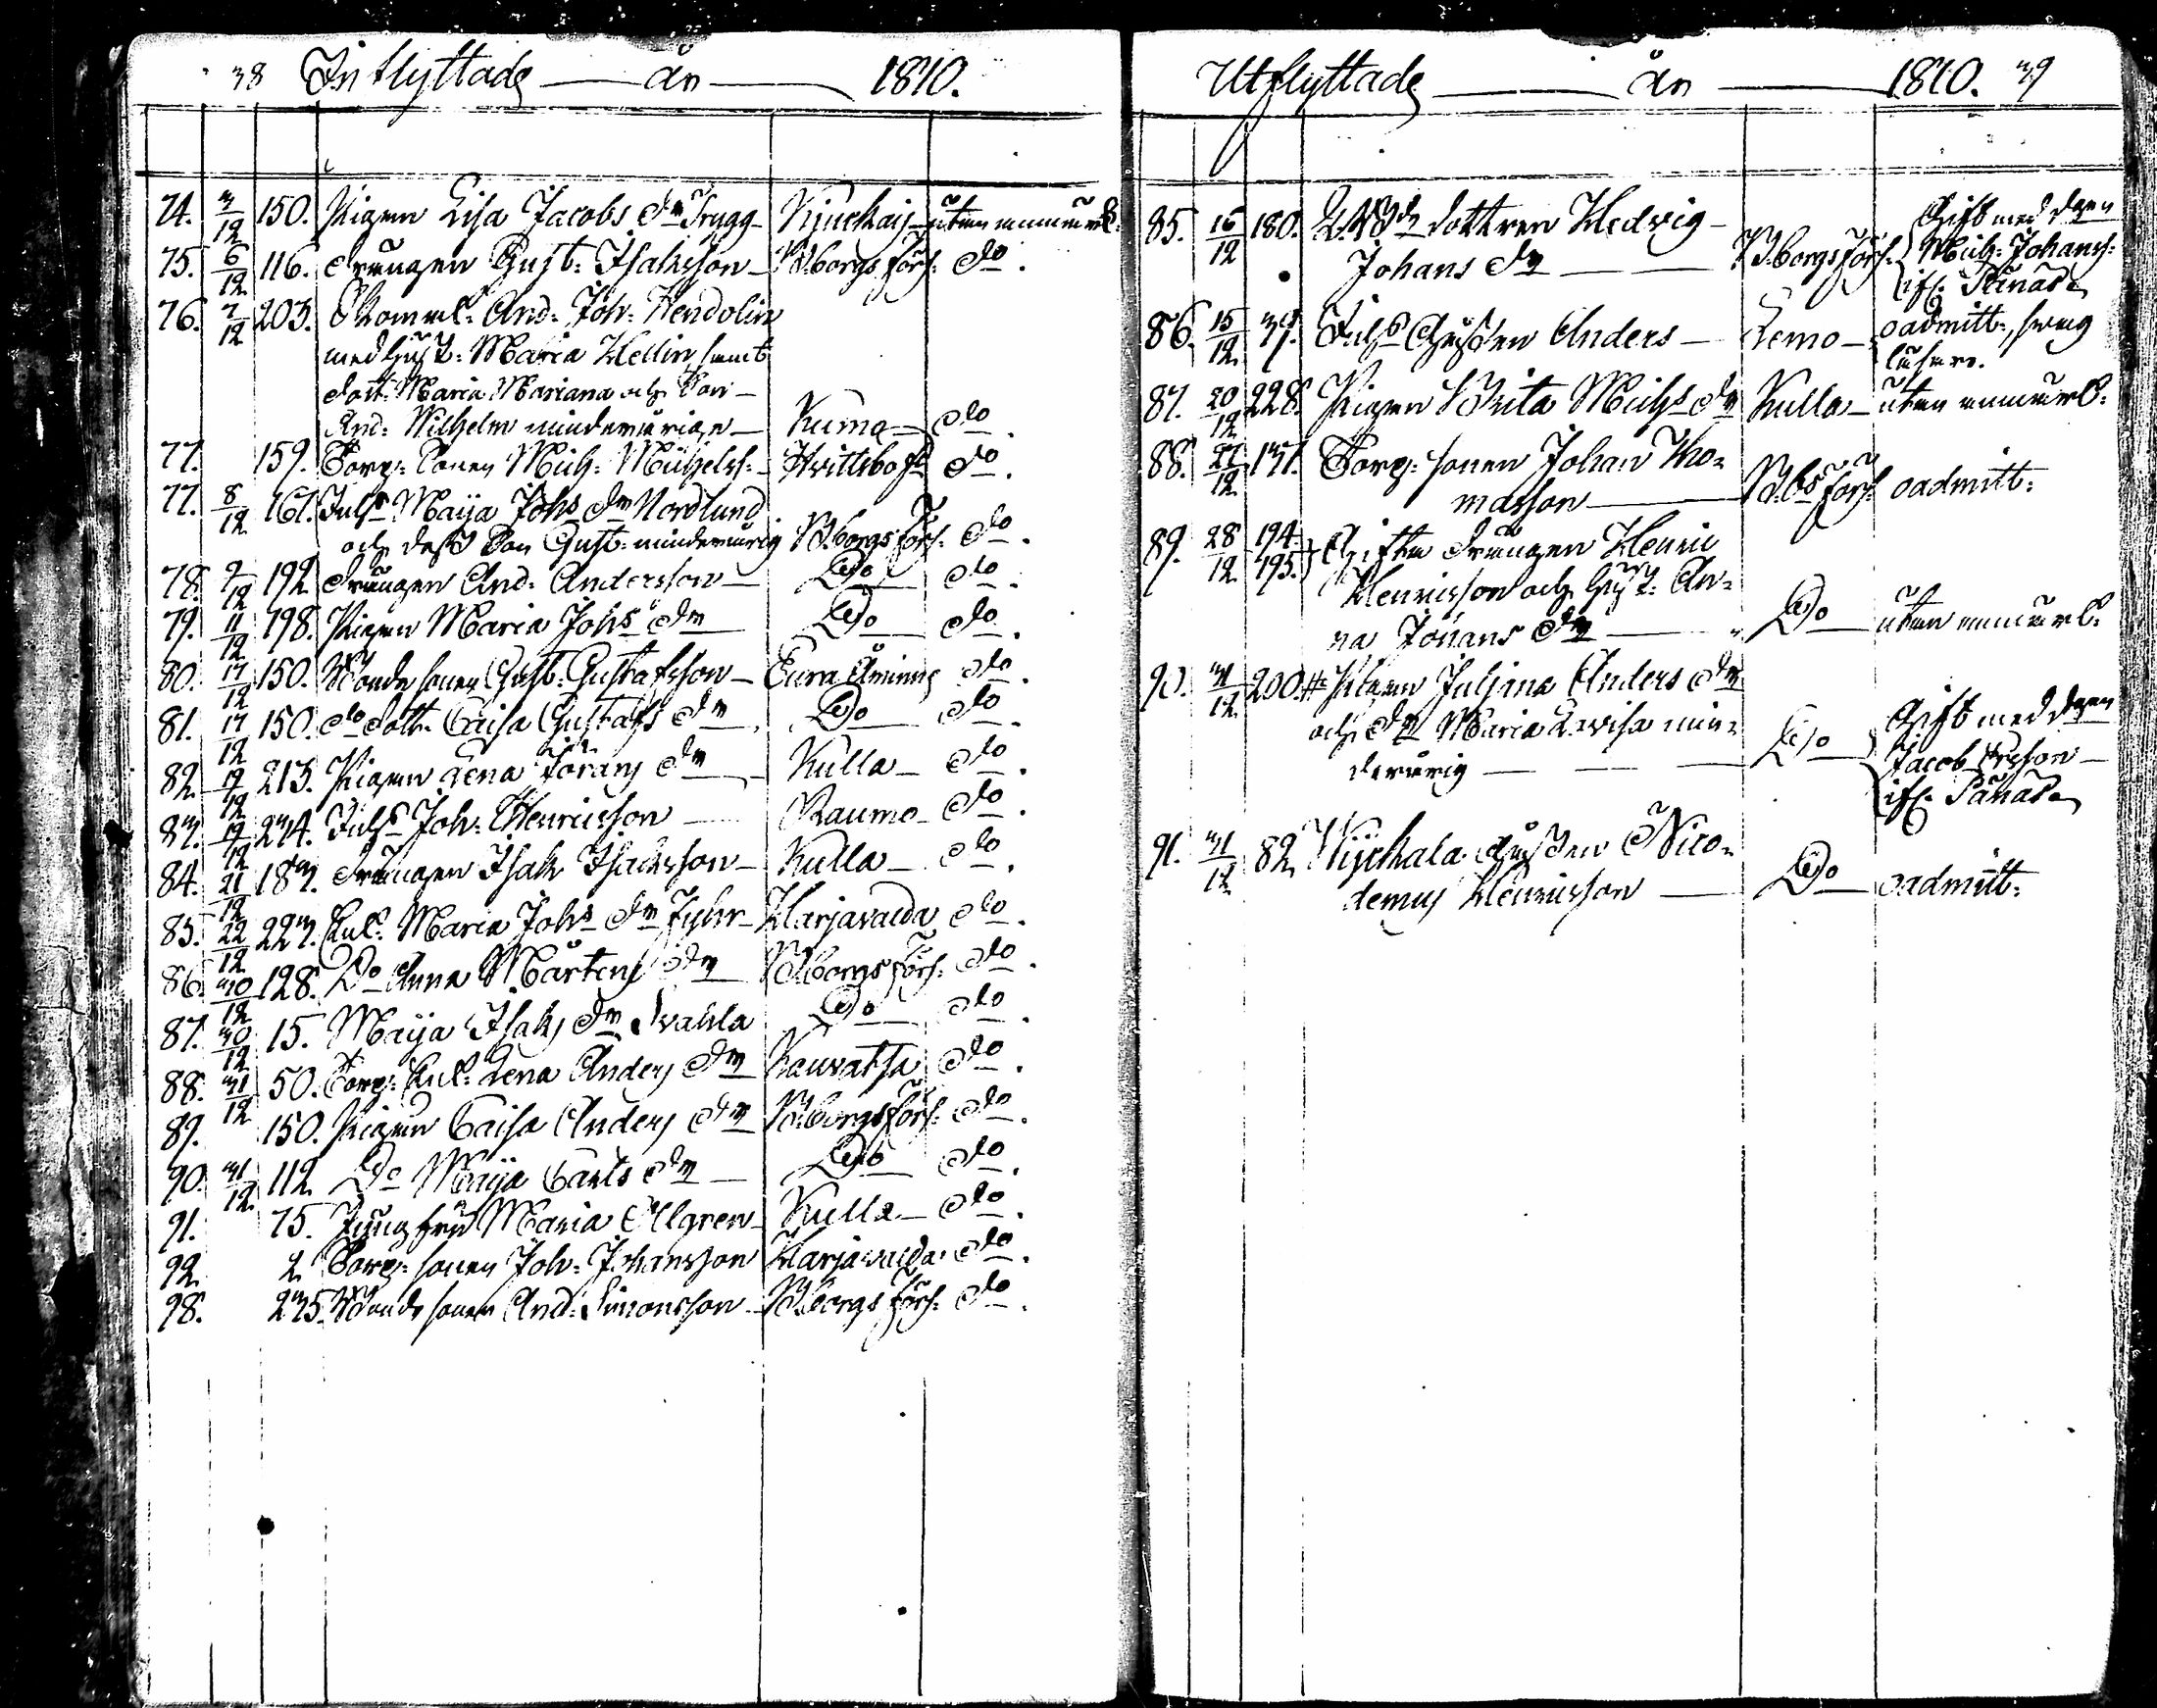 38 Inflyttade år 1810.
74. 3/12 150. Pigan Lisa Jacobs dr Trygg Kjuckais utan anmärk:
75. 6/12 116. Drängen Gust: Isaksson B:borgs förs: do.
76. 7/12 203. And: Joh: Wendolin
med hust: Maria Hellin samt
dott: Maria Mariana och Son
And: Wilhelm minderårige Kumo do.
77. 159. Torp: Sonen Mich: Michelss: Hvittisbofd do.
77. 8/12 161. Inhs Maija Johs dr Nordlund
och dess Son Gust: minderårig B:borgs förs: do.
78. 9/12 192 Drängen And: Andersson Do do.
79. 11/12 198. Pigan Maria Johs dr Do do.
80. 17/12 150. Bonde sonen Gust: Gustafsson Eura Åminne do.
81. 17/12 150. do dott: Caisa Gustafs dr Do do.
82. 19/12 213. Pigan Lena Görans dr Kulla do.
83. 19/12 234. Inhs Joh: Henricsson Raumo do.
84. 21/12 183. Drängen Isak Isaksson Kulla do.
85. 22/12 223. Enk: Maria Johs dr Harjavalda do.
86. 30/12 128. Do Anna Mårtens dr B:borgs förs: do.
87. 30/12 15. Maija Isaks dr Svahla Do do.
88. 31/12 50. Torp: Enk: Lena Anders dr Kauvatsa do.
89. 150. Pigan Caisa Anders dr B:borgs förs: do.
90. 31/12 112 Do Maija Carls dr Do do.
91. 75. Jungfru Maria Ollgren Kulla do.
92. 2. Torp: sonen Joh: Johansson Harjavalda do.
98. 235. Bonde sonen And: Simonsson B:borgs förs: do.
Utflyttade år 1810. 39
85. 16/12 180. dottren Hedvig Gift med drgen
Johans dr B:borgs förs: Mich: Johanss:
ifr.
86. 15/12 37. Inhs Gubben Anders Lemo oadmitt:, svag
läsare.
87. 20/12 228. Pigan Brita Michs dr Kulla utan anmärk:
88. 27/12 131. Torp: sonen Johan Tho=
masson B:bs förs: oadmitt:
89. 28/12 194. 195. Gifta Drängen Henric
Henricsson och hust: An=
na Johans dr Do utan anmärk:
90. 31/12 200. Pigan Juliana Anders dr Gift med drgen
och dr Maria Lovisa min=
derårig Do Jacob Ersson
ifr.
91. 31/12 82 Kijckala gubben Nico=
demus Henricsson Do oadmitt: